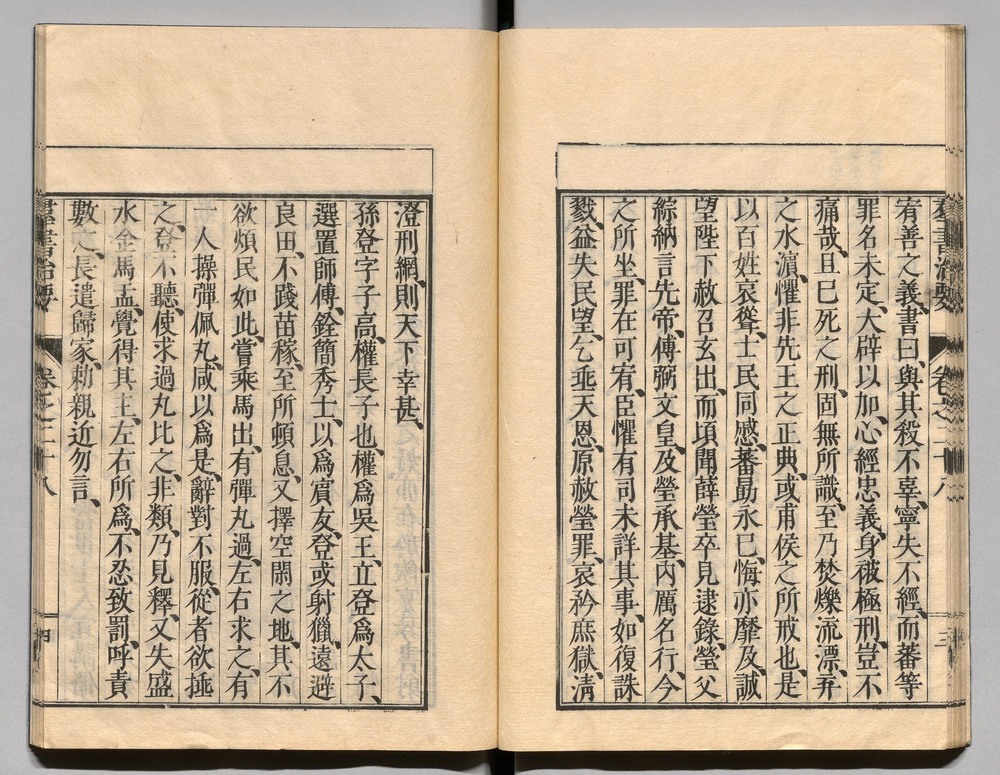 羣書治要 卷之二十八 三
宥善之義、書曰、與其殺不辜、寧失不經、而蕃等
罪名未定、大辟以加、心經忠義、身被極刑、豈不
痛哉、且已死之刑、固無所識、至乃焚爍流漂、弃
之水濵、懼非先王之正典、或甫侯之所戒也、是
以百姓哀聳、士民同慼、蕃勗永已、悔亦靡及、誠
望陛下赦召玄出、而頃聞薛瑩卒見逮錄、瑩父
綜納言先帝、傅弼文皇、及瑩承基、内厲名行、今
之所坐、罪在可宥、臣懼有司未詳其事、如復誅
戮、益失民望、乞垂天恩、原赦瑩罪、哀矜庶獄、淸
澄刑網、則天下幸甚、
孫登字子高、權長子也、權爲吳王、立登爲太子、
選置師傅、銓簡秀士、以爲賓友、登或射獵、遠避
良田、不踐苗稼、至所頓息、又擇空閑之地、其不
欲煩民如此、嘗乘馬出、有彈丸過、左右求之、有
一人操彈佩丸、咸以爲是、辭對不服、從者欲捶
之、登不聽、使求過丸比之、非類、乃見釋、又失盛
水金馬盂、覺得其主、左右所爲、不忍致罰、呼責
數之、長遣歸家、勅親近勿言、
羣書治要 卷之二十八 四